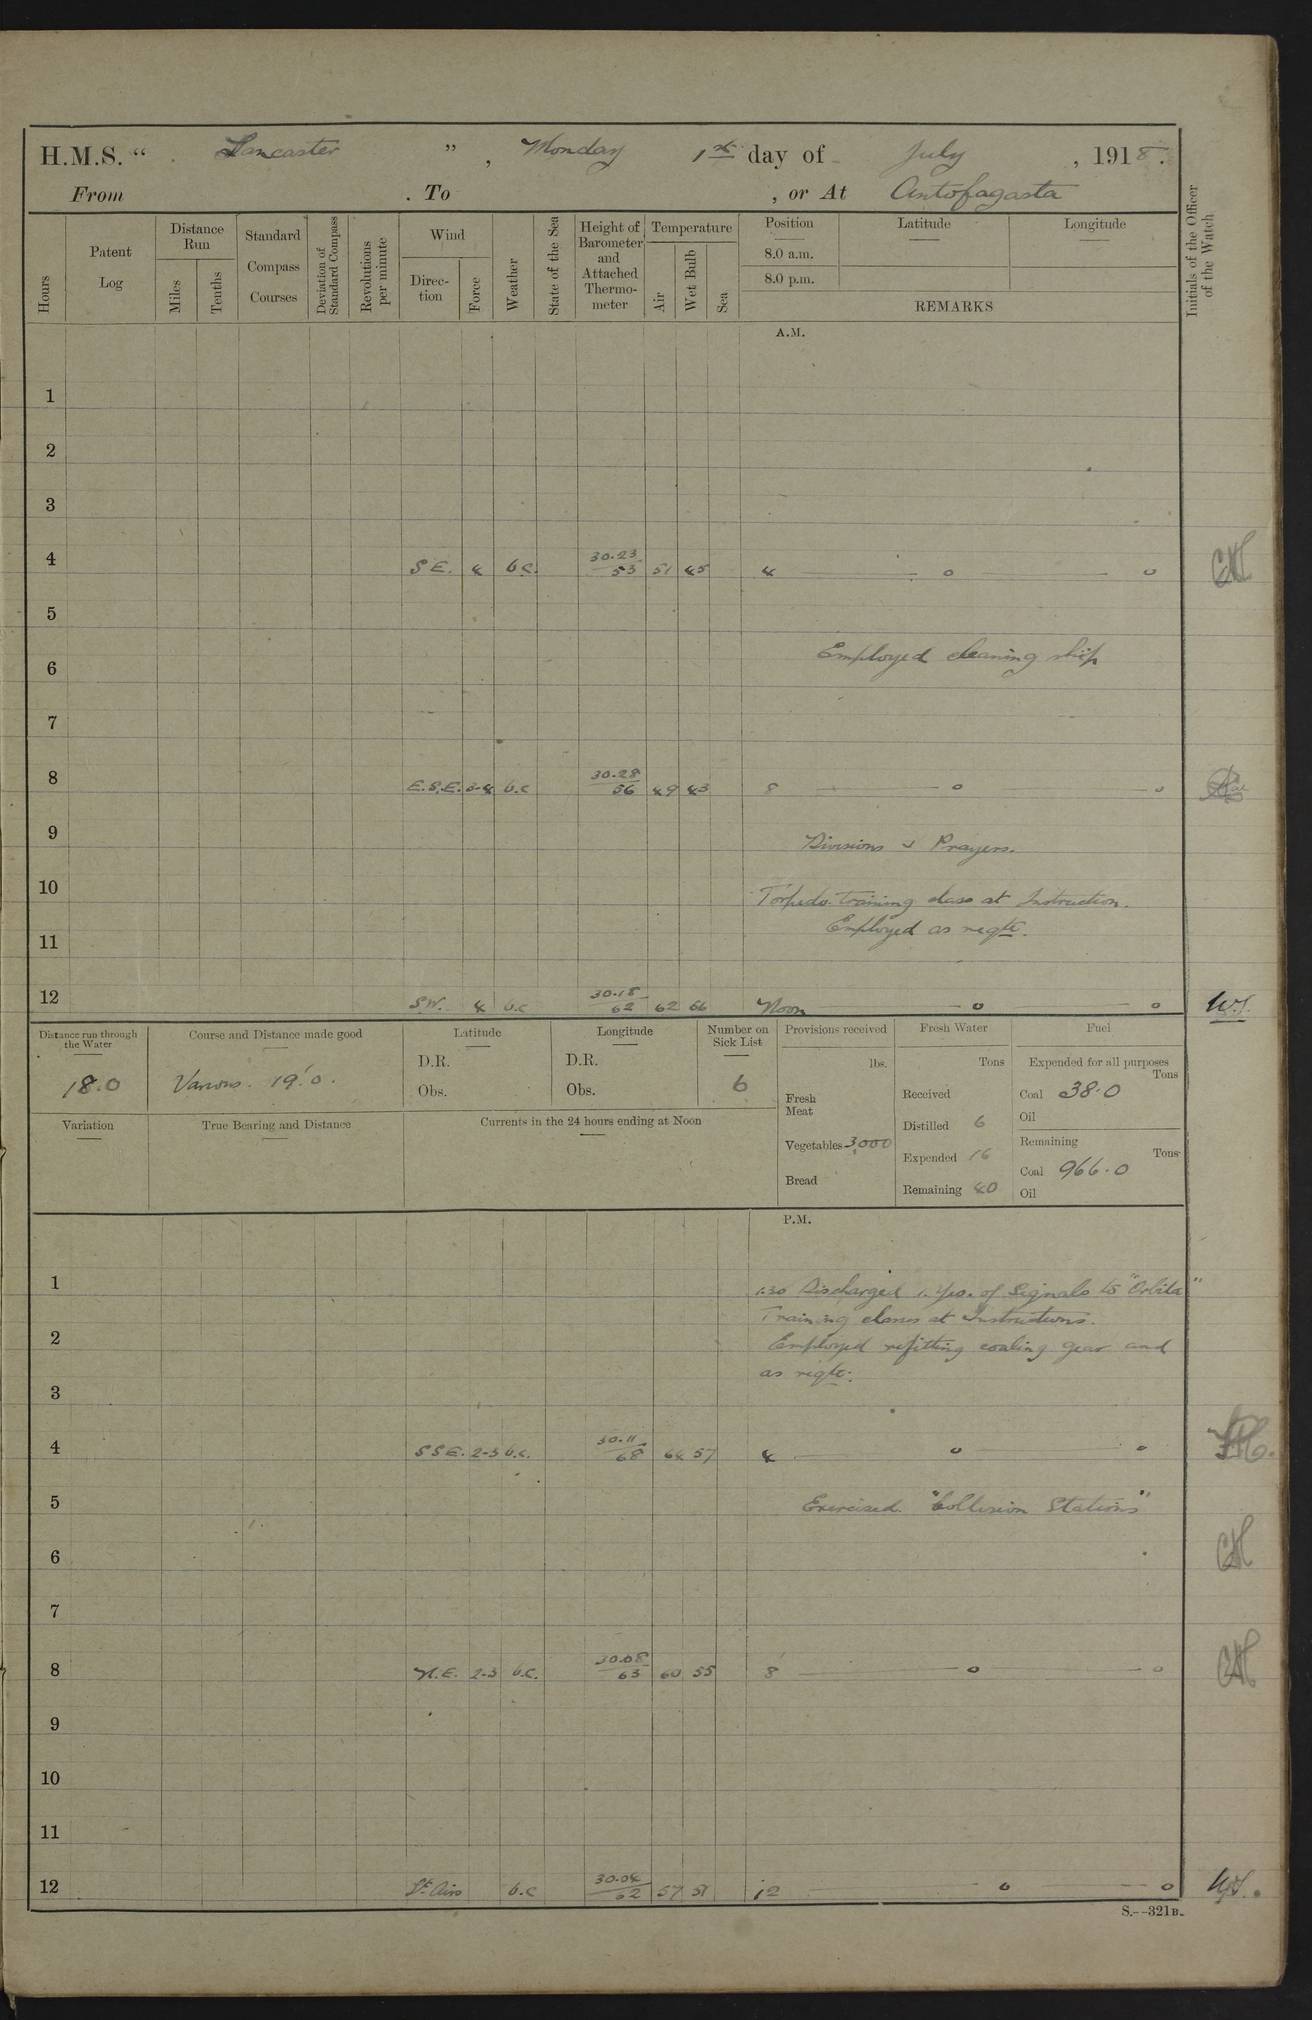 H.M.S. " Lancaster ", Monday 1st day of July, 1918.
From . To , or At Antofagasta
Hours
Patent Log
Distance Run
Miles
Tenths
Standard Compass Courses
Deviation of Standard Compass
Revolutions per minute
Wind
Direction
Force
Weather
State of the Sea
Height of Barometer and Attached Thermometer
Temperature
Air
Wet Bulb
Sea
Position
8.0 a.m.
8.0 p.m.
Latitude
Longitude
REMARKS
Initials of the Officer of the Watch
A.M.
1
2
3
4 S E. 4 b.c. 30.23 53 51 45 4 — o — o
5
6 Employed cleaning ship
7
8 E.S.E. 3-4 b.c 30.28 56 49 43 8 — o — o
9 Divisions & Prayers.
10 Torpedo training class at Instruction.
11 Employed as reqte.
12 S.W. 4 b.c 30.18 62 62 Noon — o — o
Distance run through the Water
18.0
Course and Distance made good
Various. 19'.0.
Latitude
D.R.
Obs.
Longitude
D.R.
Obs.
Number on Sick List
6
Variation
True Bearing and Distance
Currents in the 24 hours ending at Noon
Provisions received
lbs.
Fresh Meat
Vegetables 3,000
Bread
Fresh Water
Tons
Received
Distilled 6
Expended 16
Remaining 40
Fuel
Expended for all purposes
Tons
Coal 38.0
Oil
Remaining
Tons
Coal 966.0
Oil
P.M.
1 1.30 Discharged 1. Yeo. of Signals to "Orbita"
Training classes at Instructions.
2 Employed refitting coaling gear and
as reqte.
3
4 S S E. 2-3 b.c. 30.11 68 64 57 4 — o — o
5 Exercised "Collision Stations"
6
7
8 N.E. 2-3 b.c. 30.08 63 60 55 8 — o — o
9
10
11
12 Lt. Airs b.c 30.04 62 57 51 12 — o — o
S.--321B.